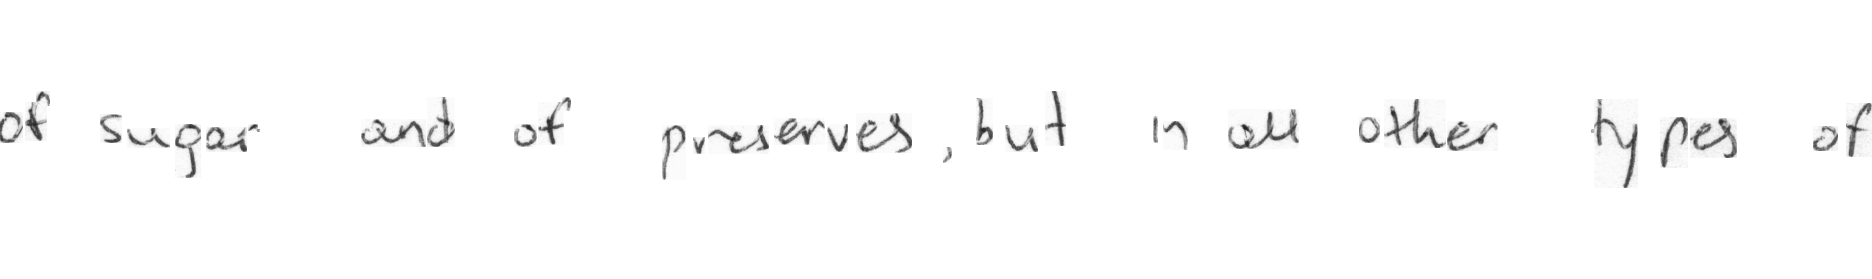 of sugar and of preserves, but in all other types of